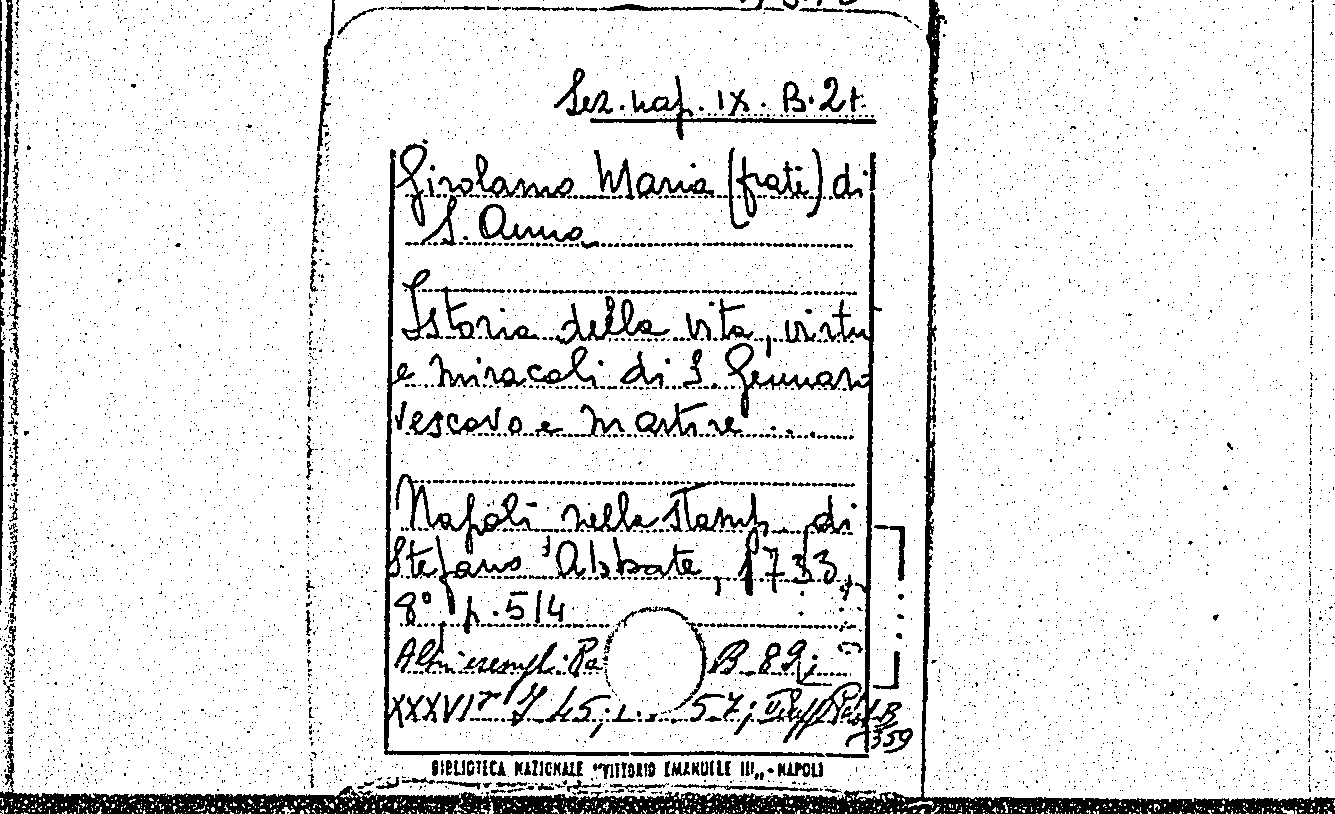 Sez. nap. IX. B. 21.
Girolamo Maria (frate) di
S. Anna
Istoria della vita, virtu
e miracoli di S. Gennaro
vescovo e martire ...
Napoli nella stamp. di
Stefano Abbate, 1733,
8° p. 514
Altri esempl: B. 89;
XXXVI 45; 57;
359
BIBLIOTECA NAZIONALE "VITTORIO EMANUELE III„ - NAPOLI